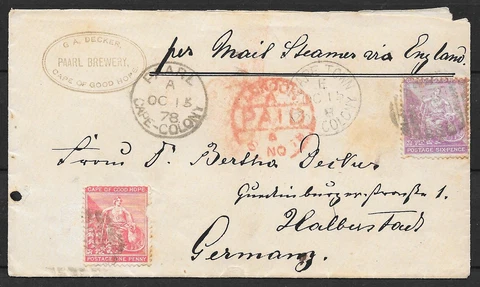 G. A. DECKER.
PAARL BREWERY.
CAPE OF GOOD HOPE
per Mail Steamer via England.
PAARL
A
OC 15
78
CAPE-COLONY
LONDON
A
PAID
6
NO
TOWN
E
OC 15
8
COLONY
POSTAGE SIXPENCE
Frau Dr. Bertha Decker
1.
Halberstadt
Germany.
CAPE OF GOOD HOPE
POSTAGE ONE PENNY